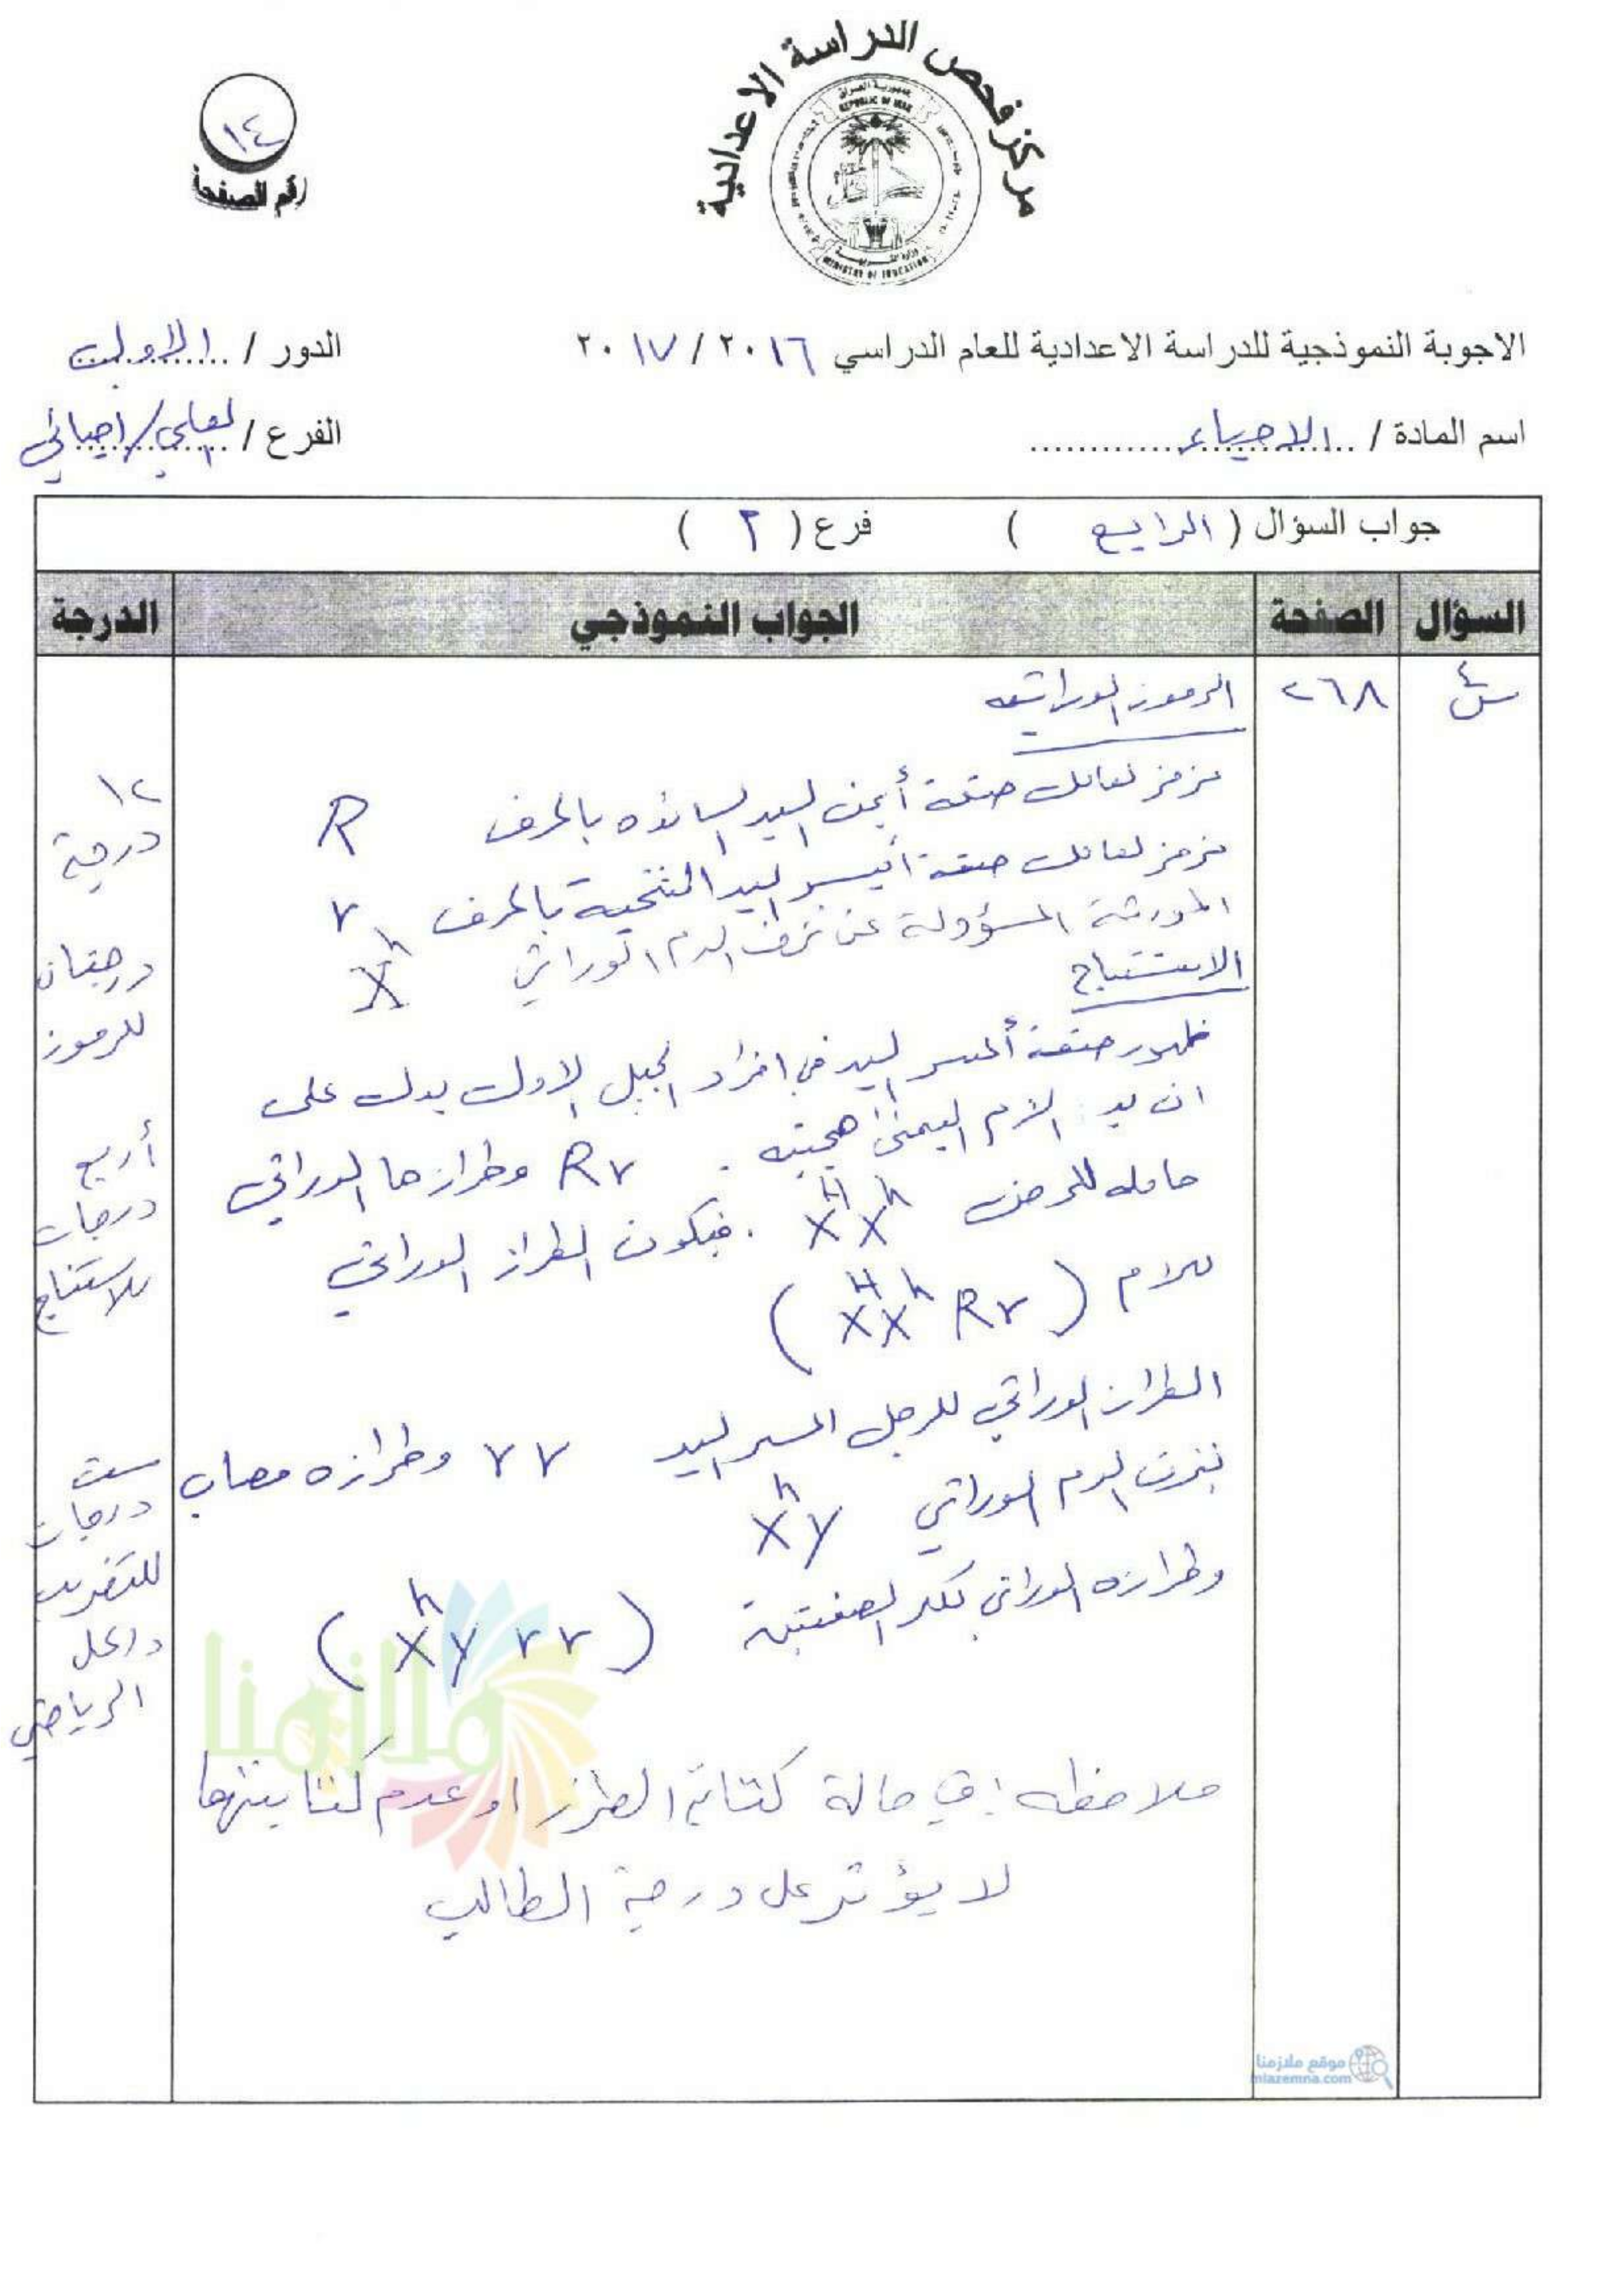 مركز فحص الدراسة الاعدادية
جمهورية العراق
REPUBLIC OF IRAQ
MINISTRY OF EDUCATION
١٤
رقم الصفحة
الاجوبة النموذجية للدراسة الاعدادية للعام الدراسي ٢٠١٦ / ٢٠١٧
الدور / الاول
اسم المادة / الاحياء
الفرع / العلمي/احيائي
جواب السؤال ( الرابع ) فرع ( ٢ )
السؤال الصفحة الجواب النموذجي الدرجة
س٤ ٢٦٨ الرموز الوراثية
نرمز لعامل صفة أيمن اليد السائدة بالحرف R
نرمز لعامل صفة أيسر اليد المتنحية بالحرف r
المورثة المسؤولة عن نزف الدم الوراثي Xʰ
الاستنتاج
ظهور صفة أعسر اليد في افراد الجيل الاول يدل على
ان يد الام اليمنى هجينة . Rr وطرازها الوراثي
حامله للمرض XᴴXʰ . فيكون الطراز الوراثي
للام ( XᴴXʰ Rr )
الطراز الوراثي للرجل اعسر اليد rr وطرازه مصاب
بنزف الدم الوراثي Xʰy
وطرازه الوراثي لكلا الصفتين ( Xʰy rr )
ملاحظه : في حالة كتابة الطرز او عدم كتابتها
لا يؤثر على درجة الطالب
١٢
درجة
درجتان
للرموز
أربع
درجات
للاستنتاج
ست
درجات
للتضريب
داخل
الرياضي
ملازمنا
موقع ملازمنا
mlazemna.com